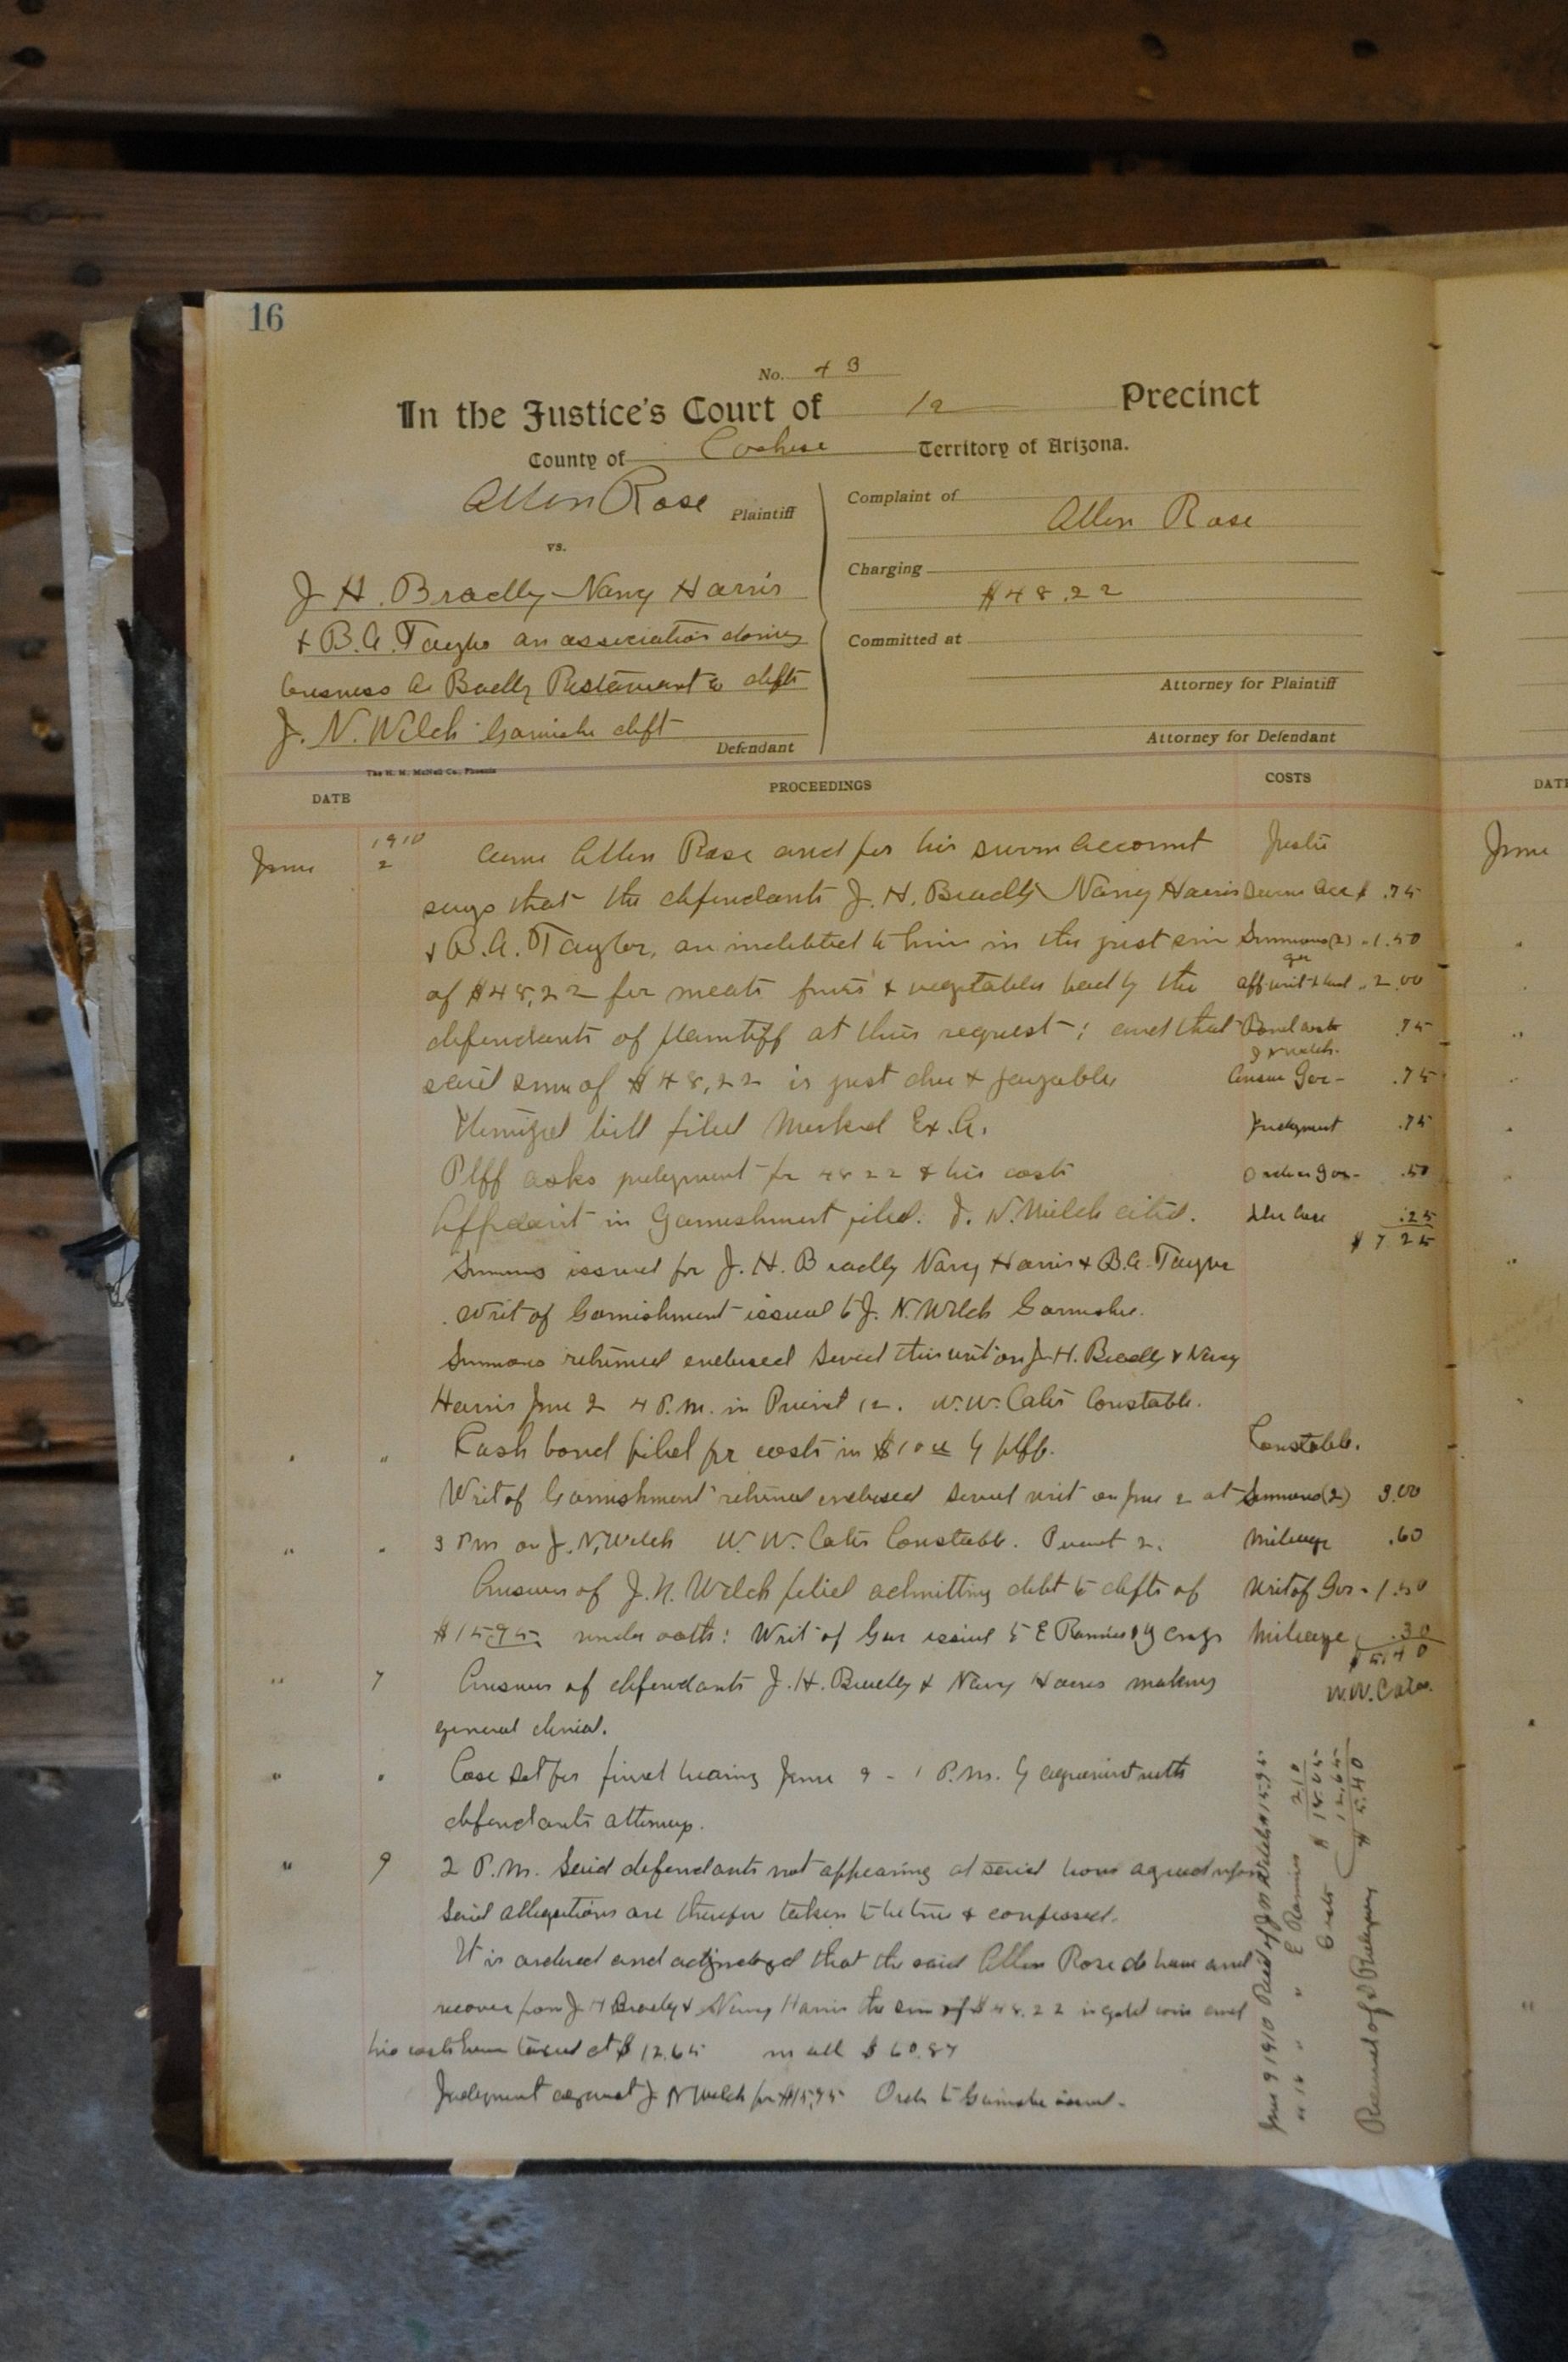 16
No. 43
In the Justice's Court of 12 Precinct
County of Cochise Territory of Arizona.
Allen Rose Plaintiff
vs.
J H. Bradly Nancy Harris
+ B.A. Taylor an association doing
business as Bradly Restaurant defts
J. N. Welch Garnishe deft
Defendant
Complaint of
Allen Rose
Charging
$48.22
Committed at
Attorney for Plaintiff
Attorney for Defendant
The H. H. McNeil Co., Phoenix
DATE
PROCEEDINGS
COSTS
DATE
June 1910 2 Came Allen Rose and for his sworn account
says that the defendants J. H. Bradly Nancy Harris
+ B.A. Taylor, are indebted to him in the just sum
of $48,22 for meats fruits + vegetables had by the
defendants of plaintiff at their request; and that
said sum of $48,22 is just due + payable
Itemized bill filed Marked Ex. A.
Plff asks judgment for 4822 & his costs
Affidavit in Garnishment filed. J. N. Welch cited.
Summons issued for J. H. Bradly Nancy Harris + B.A. Taylor
Writ of Garnishment issued to J. N. Welch Garnishe.
Summons returned endorsed Served this writ on J. H. Bradly + Nancy
Harris June 2 4 P.M. in Precinct 12. W.W. Cates Constable.
" " Cash bond filed for costs in $10 by plff.
Writ of Garnishment returned endorsed served writ on June 2 at
" " 3 PM on J. N. Welch W. W. Cates Constable. Precinct 2.
Answer of J. N. Welch filed admitting debt to defts of
$15.95 under oath: Writ of Gar issued to E Ramies
" 7 Answer of defendants J. H. Bradly + Nancy Harris making
general denial.
" " Case set for final hearing June 9 - 1 P.M. by agreement with
defendants attorney.
" 9 2 P.M. Said defendants not appearing at said hour agreed upon
said allegations are therefore taken to be true + confessed.
It is ordered and adjudged that the said Allen Rose do have and
recover from J H Bradly + Nancy Harris the sum of $48.22 in gold coin and
his costs herein taxed at $12.65 in all $60.87
Judgment against J N Welch for $15,95 Order to Garnishe issued.
Justice
Sworn acc $ .75
Summons (2) " 1.50
gar
aff writ + bond " 2.00
Bond costs .75
J N Welch.
Answer Gar- .75
Judgment .75
Order Gar- .50
.25
$7.25
Constable.
Summons (2) 3.00
Mileage .60
Writ of Gar - 1.50
Mileage .30
$5.40
W.W. Cates.
June 9 1910 Recd of J N Welch $15.95
" 16 " " E Ramies 2.10
$18.05
Costs 12.65
$5.40
June